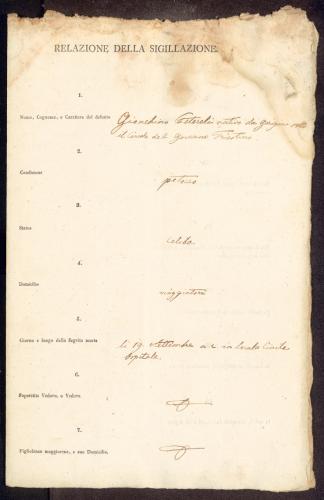 RELAZIONE DELLA SIGILLAZIONE.
1.
Nome, Cognome, e Carattere del defunto
Giacchino nativo da
il Circolo del Governo Triestino
2.
Condizione
3.
Stato
celibe
4.
Domicilio
maggiorenne
5.
Giorno e luogo della seguita morte
li 19 Settembre a. c. in locale Civile
Ospitale.
6.
Superstite Vedovo, o Vedova
7.
Figliolanza maggiorenne, e suo Domicilio.